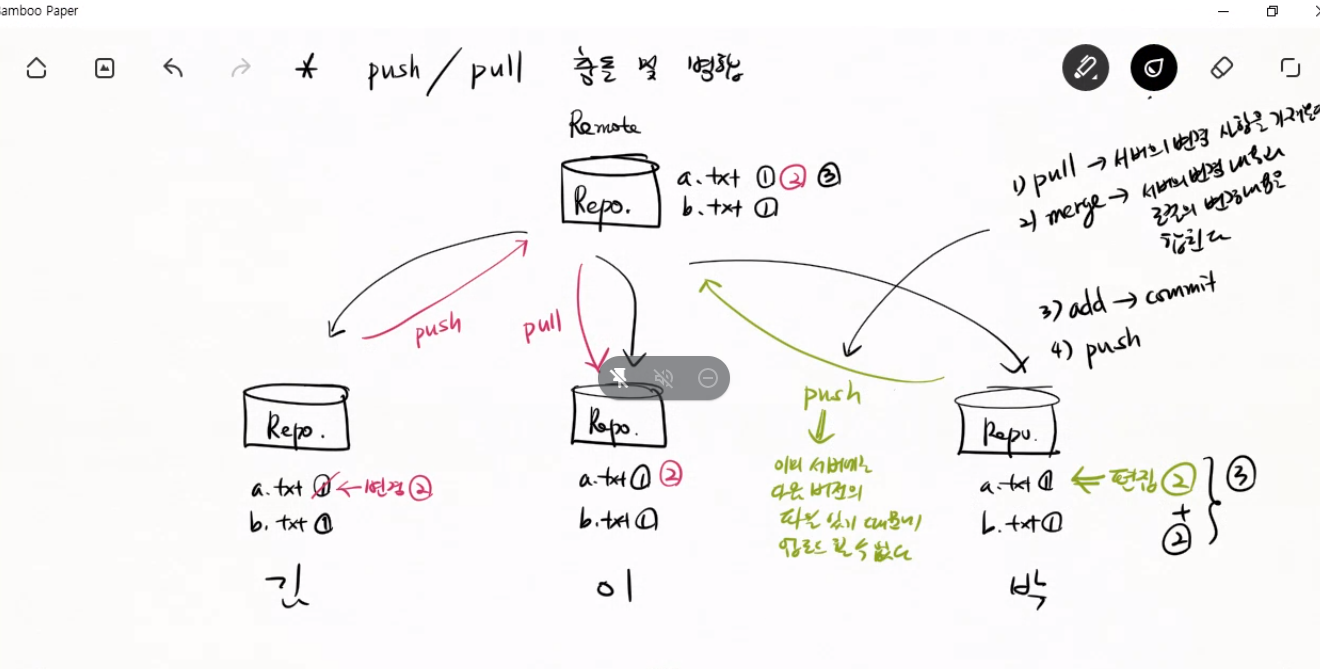 amboo Paper
* push / pull 충돌 및 병합
Remote
Repo.
a.txt ① ② ③
b.txt ①
1) pull → 서버의 변경 사항을 가져온다
2) merge → 서버의 변경 내용과
로컬의 변경내용을
합친다
3) add → commit
4) push
push
pull
push
이미 서버에는
다른 버전의
파일 있기 때문에
업로드 할 수 없다
Repo.
a.txt ① ← 변경 ②
b.txt ①
김
Repo.
a.txt ① ②
b.txt ①
이
Repo.
a.txt ① ⇐ 편집 ② + ② } ③
b.txt ①
박